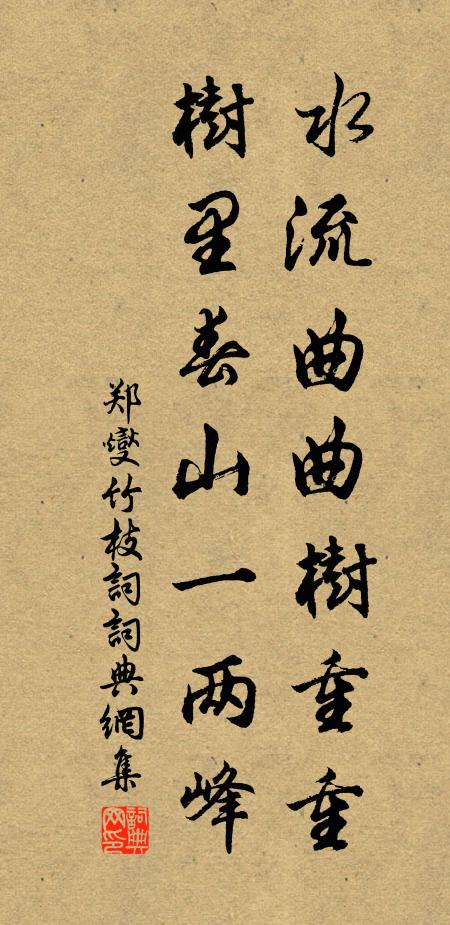 水流曲曲樹重重
樹里春山一两峰
郑燮竹枝詞詞典網集
詞典
网印